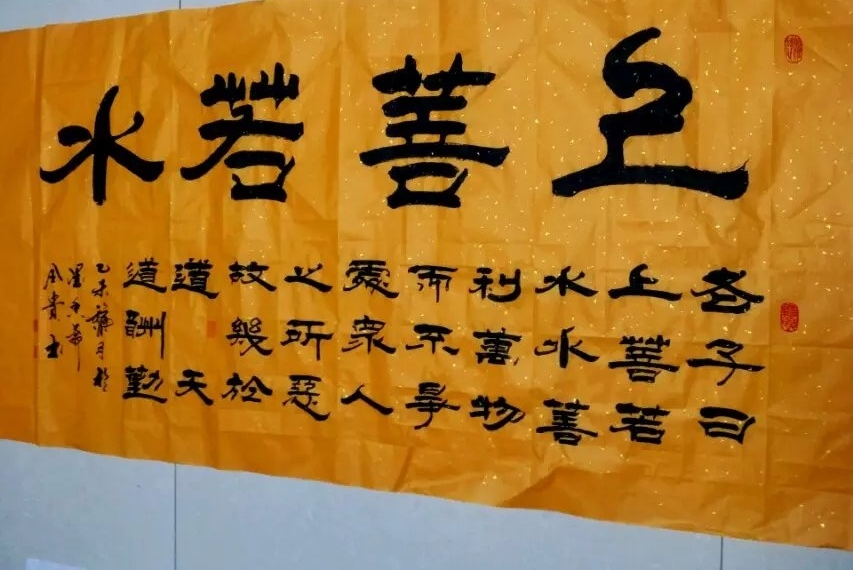 上善若水
老子曰
上善若
水水善
利萬物
而不爭
處衆人
之所惡
故幾於
道 天
道酬勤
乙未 月於
貴书